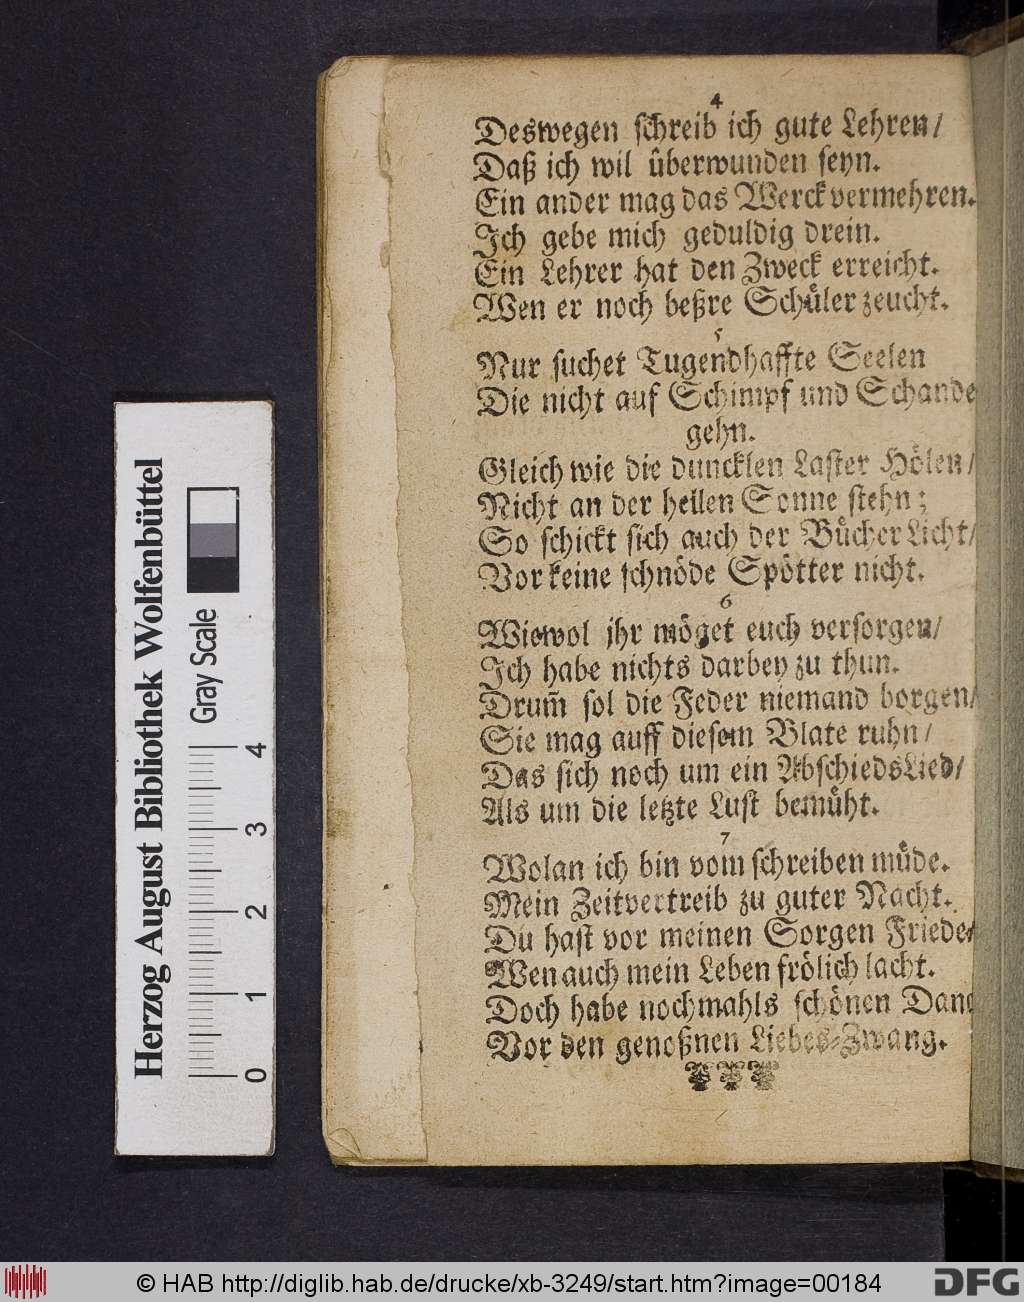 4
Deswegen schreib ich gute Lehren/
Daß ich wil uͤberwunden seyn.
Ein ander mag das Werck vermehren.
Ich gebe mich geduldig drein.
Ein Lehrer hat den Zweck erreicht.
Wen er noch beßre Schuͤler zeucht.
5
Nur suchet Tugendhaffte Seelen
Die nicht auf Schimpf und Schande
gehn.
Gleich wie die duncklen Laster Hoͤlen/
Nicht an der hellen Sonne stehn;
So schickt sich auch der Buͤcher Licht/
Vor keine schnoͤde Spoͤtter nicht.
6
Wiewol jhr moͤget euch versorgen/
Ich habe nichts darbey zu thun.
Drum̃ sol die Feder niemand borgen/
Sie mag auff diesem Blate ruhn/
Das sich noch um ein AbschiedsLied/
Als um die letzte Lust bemuͤht.
7
Wolan ich bin vom schreiben muͤde.
Mein Zeitvertreib zu guter Nacht.
Du hast vor meinen Sorgen Friede/
Wen auch mein Leben froͤlich lacht.
Doch habe nochmahls schoͤnen Danc
Vor den genoßnen Liebes-Zwang.
Herzog August Bibliothek Wolfenbüttel
Gray Scale
0 1 2 3 4
© HAB http://diglib.hab.de/drucke/xb-3249/start.htm?image=00184
DFG